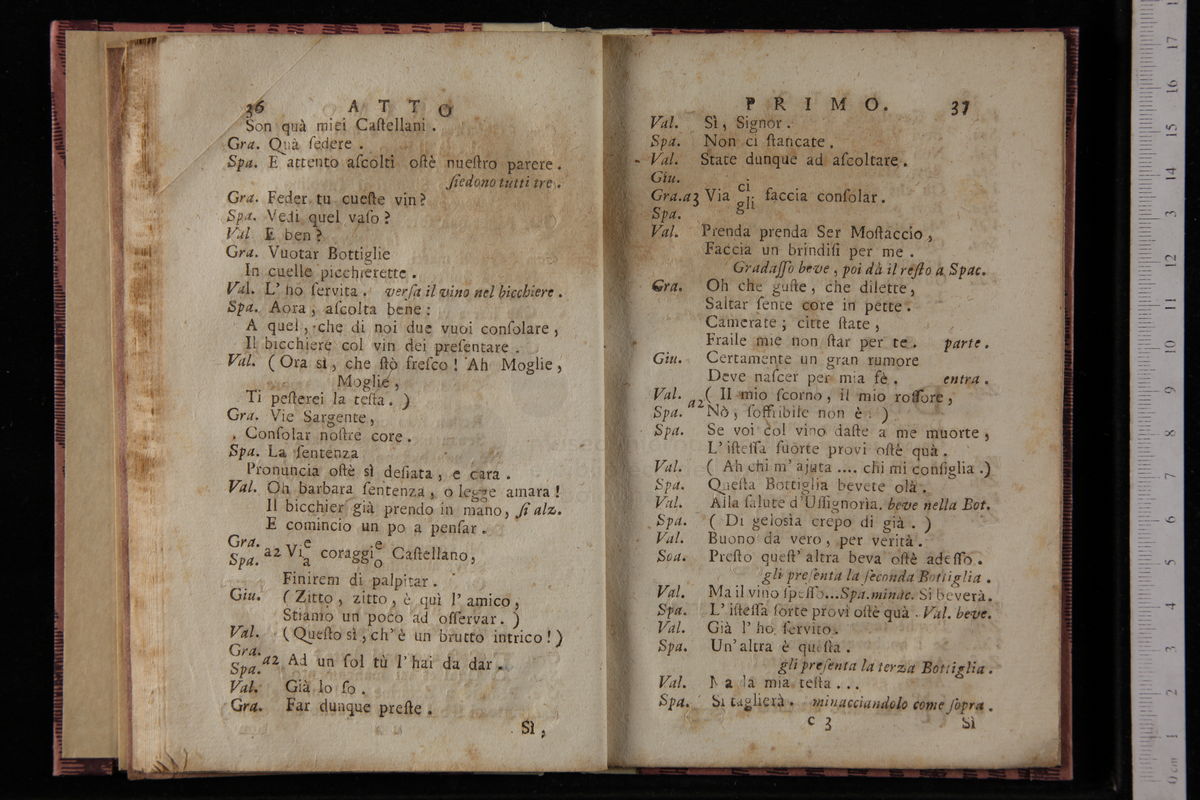 36 ATTO
Son quà miei Caſtellani.
Gra. Quà ſedere.
Spa. E attento aſcolti oſtè nueſtro parere.
ſiedono tutti tre.
Gra. Feder tu cueſte vin?
Spa. Vedi quel vaſo?
Val E ben?
Gra. Vuotar Bottiglie
In cuelle picchierette.
Val. L' ho ſervita. verſa il vino nel bicchiere.
Spa. Aora, aſcolta bene:
A quel, che di noi due vuoi conſolare,
Il bicchiere col vin dei preſentare.
Val. (Ora sì, che ſtò freſco! Ah Moglie,
Moglie,
Ti peſterei la teſta.)
Gra. Vie Sargente,
Conſolar noſtre core.
Spa. La ſentenza
Pronuncia oſtè sì deſiata, e cara.
Val. Oh barbara ſentenza, o legge amara!
Il bicchier già prendo in mano, ſi alz.
E comincio un po a penſar.
Gra.
Spa. a2 Vi e/a coraggi e/o Caſtellano,
Finirem di palpitar.
Giu. (Zitto, zitto, è quì l' amico,
Stiamo un poco ad oſſervar.)
Val. (Queſto sì, ch' è un brutto intrico!)
Gra.
Spa. a2 Ad un ſol tù l' hai da dar.
Val. Già lo ſo.
Gra. Far dunque preſte.
Sì,
PRIMO. 37
Val. Sì, Signor.
Spa. Non ci ſtancate.
Val. State dunque ad aſcoltare.
Giu.
Gra. a3 Via ci/gli faccia conſolar.
Spa.
Val. Prenda prenda Ser Moſtaccio,
Faccia un brindiſi per me.
Gradaſſo beve, poi dà il reſto a Spac.
Gra. Oh che guſte, che dilette,
Saltar ſente core in pette.
Camerate; citte ſtate,
Fraile mie non ſtar per te. parte.
Giu. Certamente un gran rumore
Deve naſcer per mia fè. entra.
Val. a2 (Il mio ſcorno, il mio roſſore,
Spa. Nò, ſoffribile non è.)
Spa. Se voi col vino daſte a me muorte,
L' iſteſſa ſuorte provi oſtè quà.
Val. (Ah chi m' ajuta .... chi mi conſiglia.)
Spa. Queſta Bottiglia bevete olà.
Val. Alla ſalute d' Uſſignorìa. beve nella Bot.
Spa. (Di geloſia crepo di già.)
Val. Buono da vero, per verità.
Soa. Preſto queſt' altra beva oſtè adeſſo.
gli preſenta la ſeconda Bottiglia.
Val. Ma il vino ſpeſſo... Spa. minac. Si beverà.
Spa. L' iſteſſa ſorte provi oſtè quà. Val. beve.
Val. Già l' ho ſervito.
Spa. Un' altra è queſta.
gli preſenta la terza Bottiglia.
Val. Ma la mia teſta...
Spa. Si taglierà. minacciandolo come ſopra.
C 3 Sì